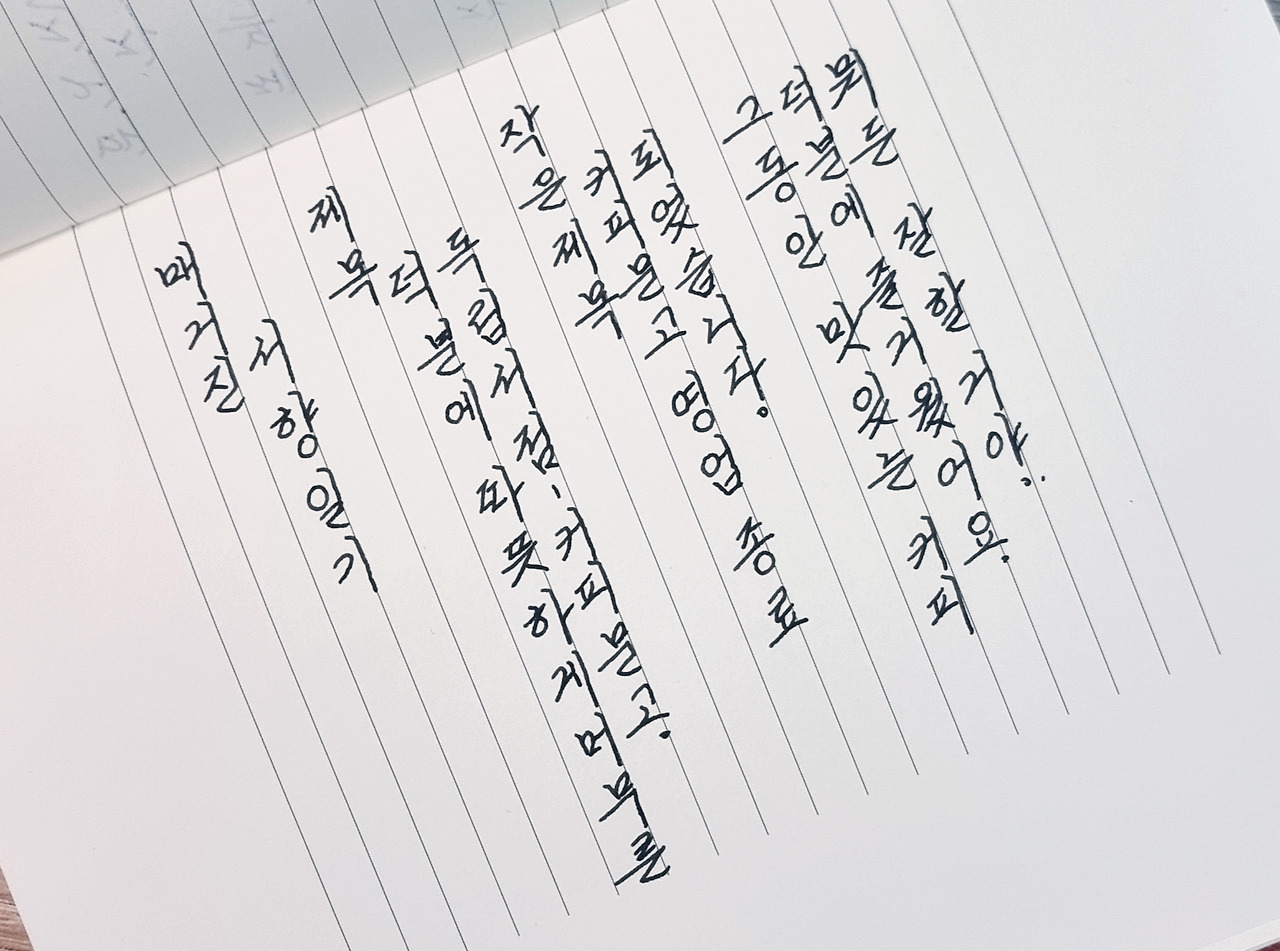 매거진
서향일기
제목
덕분에 따뜻하게 머무른
독립서점, 커피문고.
작은 제목
커피문고 영업 종료
되었습니다.
그동안 맛있는 커피
덕분에 즐거웠어요.
뭐든 잘할거야..